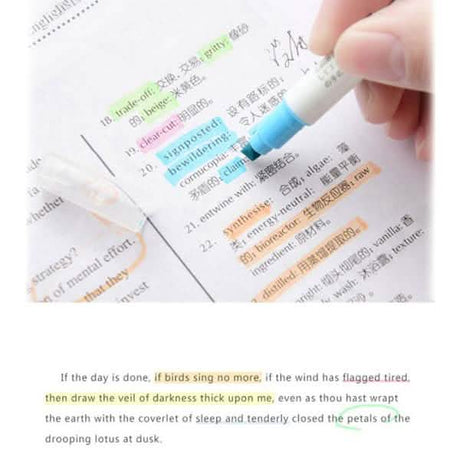 English
18. trade-off: 交换, 交易; gritty: 像砂
的; beige: 米黄色。
19. clear-cut: 明显的。
20. signposted: 设有路标的,
bewildering: 令人迷惑的
cornucopia:
矛盾的; claim
21. entwine with: 紧密结合。
synthesise: 合成; algae: 藻
类; energy-neutral: 能量平衡
22. 的; bioreactor: 生物反应器; raw
ingredient: 原材料。
distilled: 用蒸馏提取的。
vanilla: 香
wash: 沐浴露; texture:
whether
strategy?
n of mental effort.
that they
invest
If the day is done, if birds sing no more, if the wind has flagged tired,
then draw the veil of darkness thick upon me, even as thou hast wrapt
the earth with the coverlet of sleep and tenderly closed the petals of the
drooping lotus at dusk.